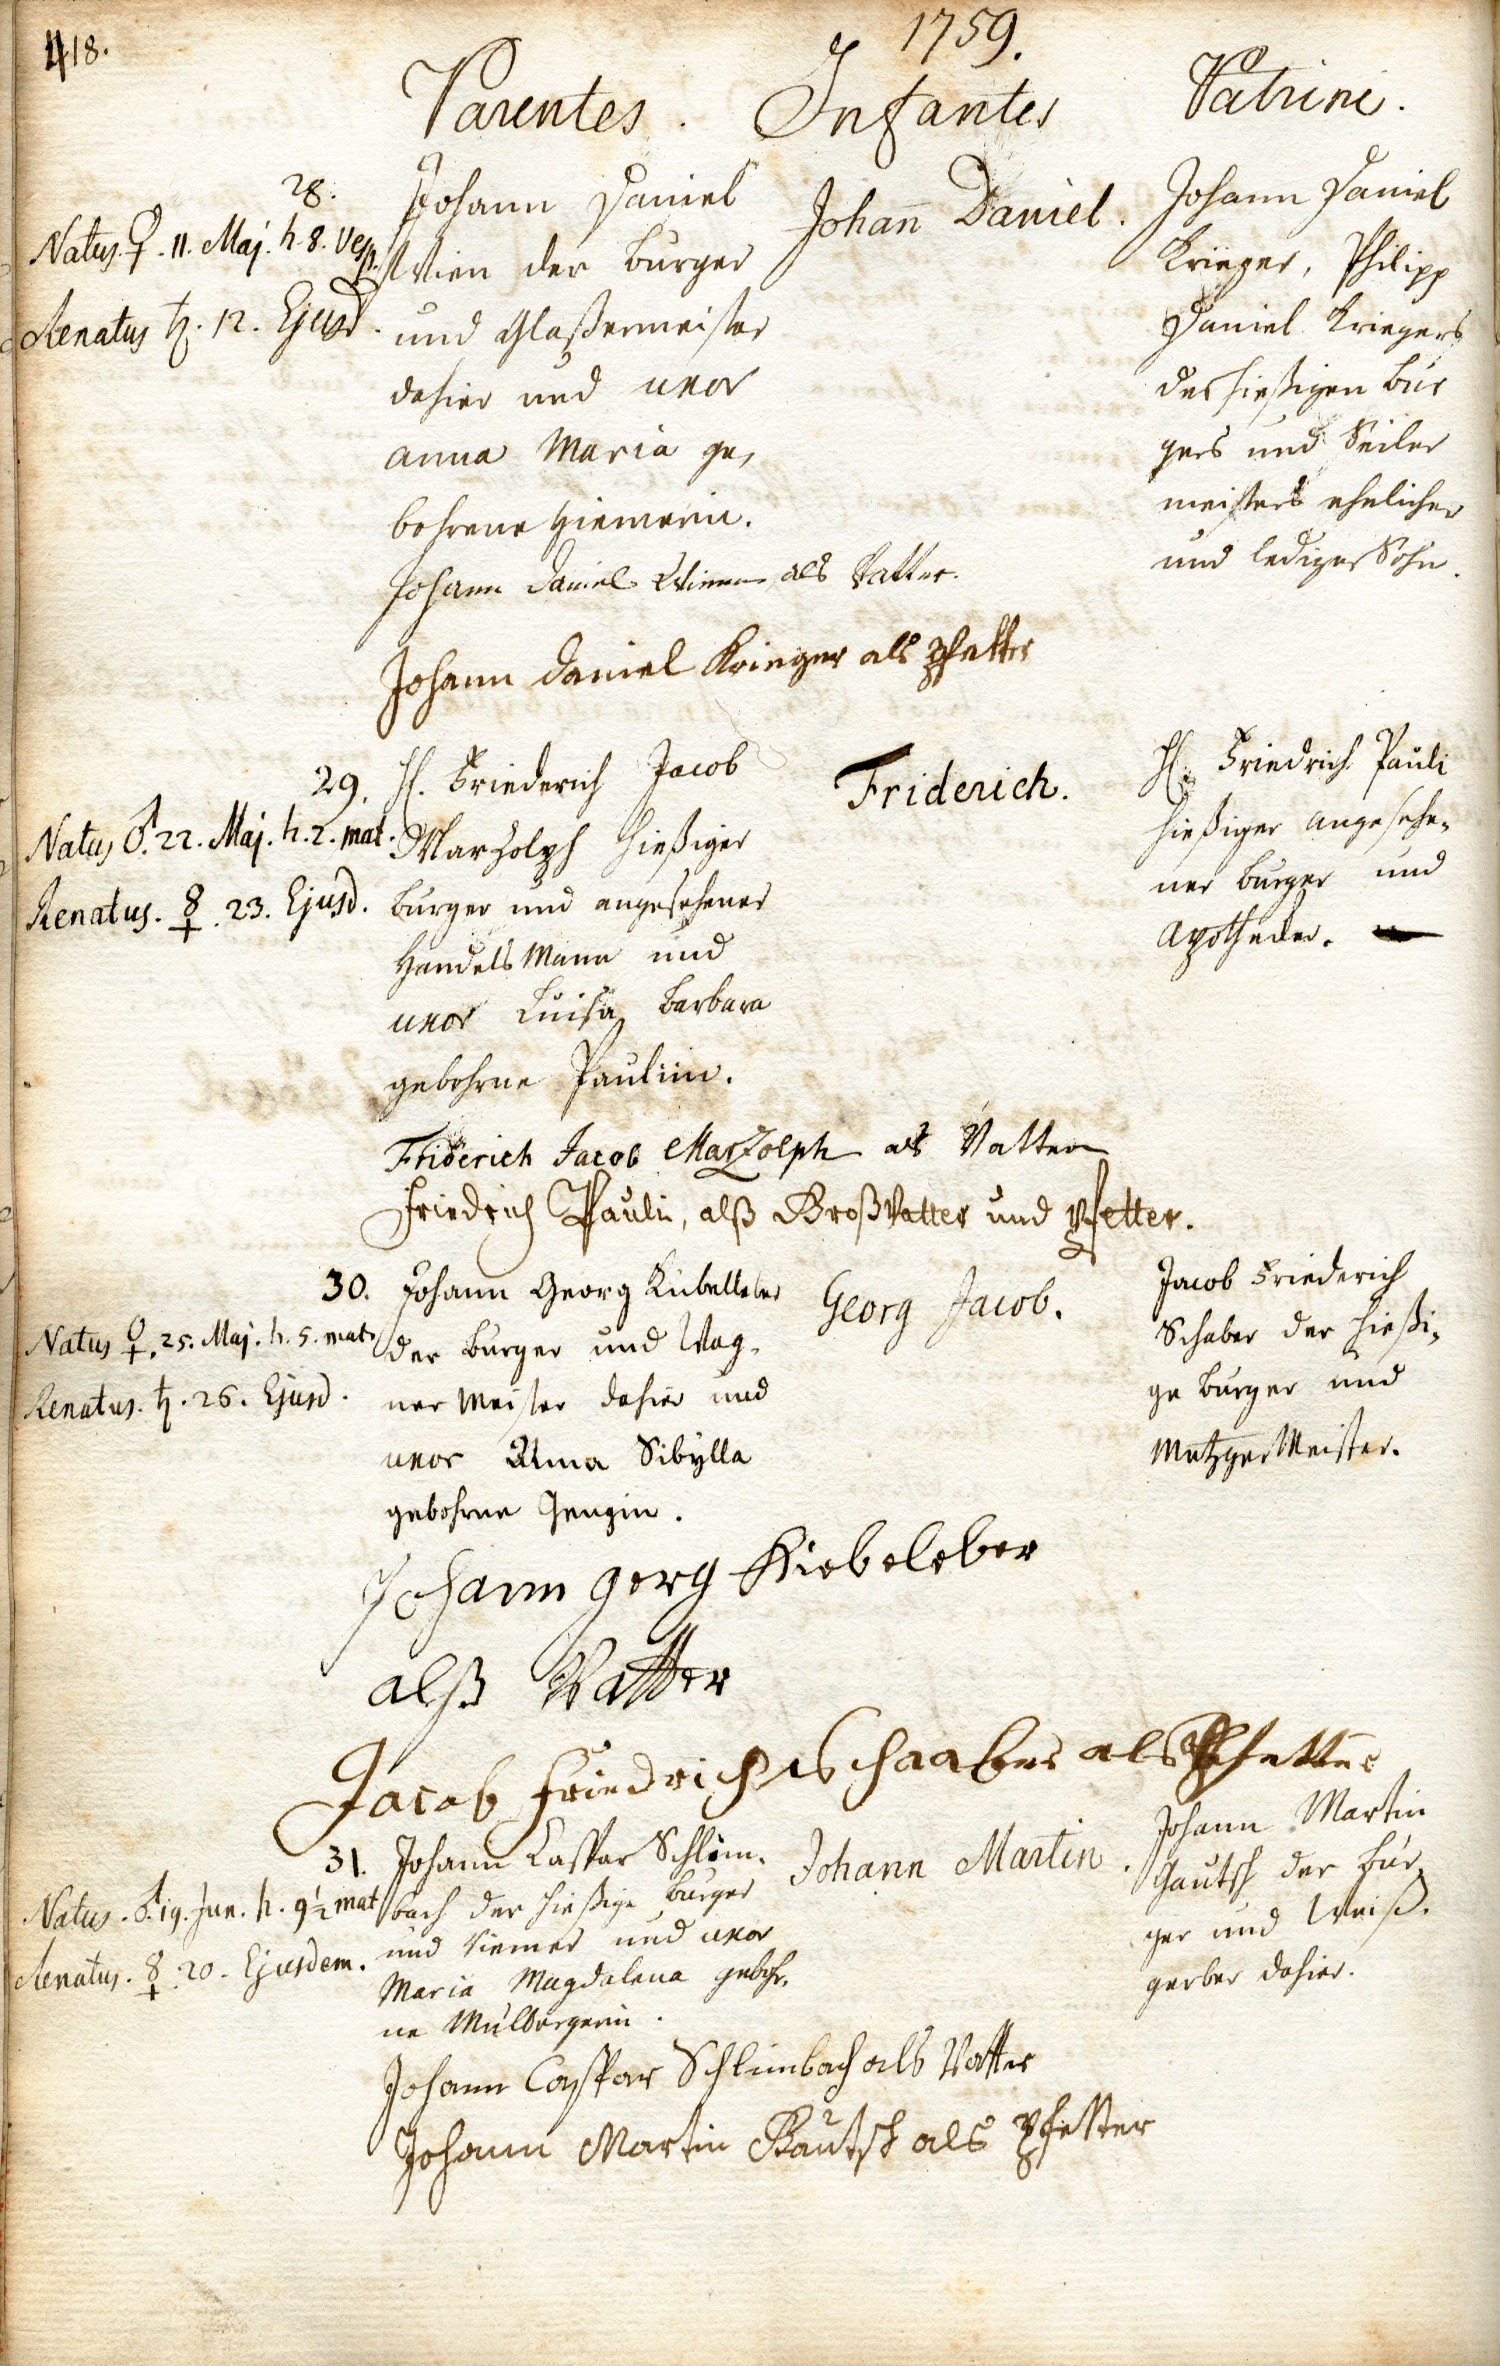 418.
1759.
Parentes. Infantes Patrini.
28.
Natus ♀. 11. Maj. h. 8. Vesp.
Renatus ♄. 12. Ejusd.
Johann Daniel
Wien der burger
und Glaßermeister
dahier und uxor
anna Maria ge,
bohrene
Johann Daniel als Vatter.
Johann Daniel Krieger als Pfetter
Johañ Daniel.
Johann Daniel
Krieger, Philipp
Daniel Kriegers
des hießigen bur
gers und Seiler
meisters ehelicher
und lediger Sohn.
29.
Natus ♂. 22. Maj. h. 2. mat.
Renatus. ☿. 23. Ejusd.
H. Friederich Jacob
Marzolph hießiger
burger und angesehener
Handels Mann und
uxor Luisa barbara
gebohrne Pauliin.
Friderich Jacob Marzolph als Vatter
Friedrich Pauli, alß Großvatter und Pfetter.
Friderich.
H. Friedrich Pauli
hießiger angesehe,
ner burger und
Apothecker.
30.
Natus ♀. 25. Maj. h. 5. mat.
Renatus. ♄. 26. Ejusd.
Johann Georg Kübelleber
der burger und Wag,
ner Meister dahier und
uxor Anna Sibylla
gebohrne
Johann gerg Kiebeleber
alß Vatter
Jacob Friedrich Schaaber als Pfetter
Georg Jacob.
Jacob Friederich
Schaber der hießi,
ge burger und
Metzger Meister.
31.
Natus. ♂. 19. Jun. h. 9½ mat
Renatus. ☿. 20. Ejusdem.
Johann Caspar Schlim,
bach der hießige burger
und und uxor
Maria Magdalena gebohr,
ne
Johann Caspar Schlimbach als Vatter
Johann Martin Bautsch als Pfetter
Johann Martin.
Johann Martin
bautsch der bur,
ger und Weiß,
gerber dahier.